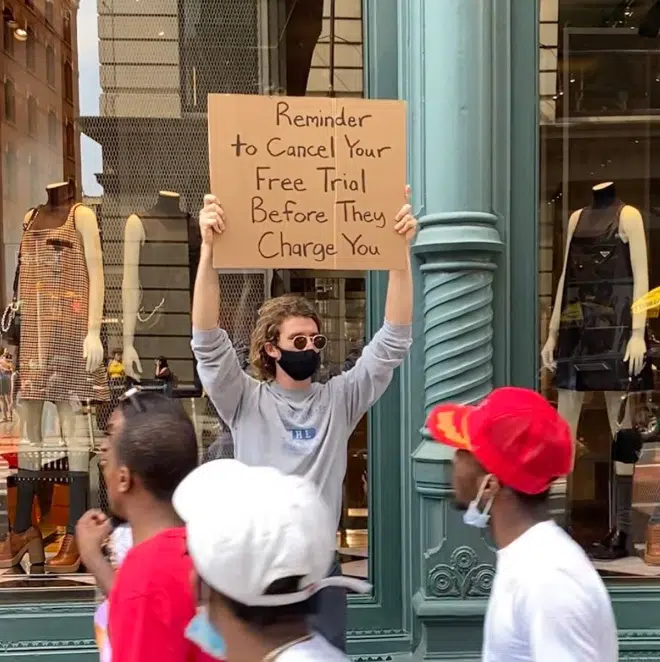 Reminder
to Cancel Your
Free Trial
Before They
Charge You